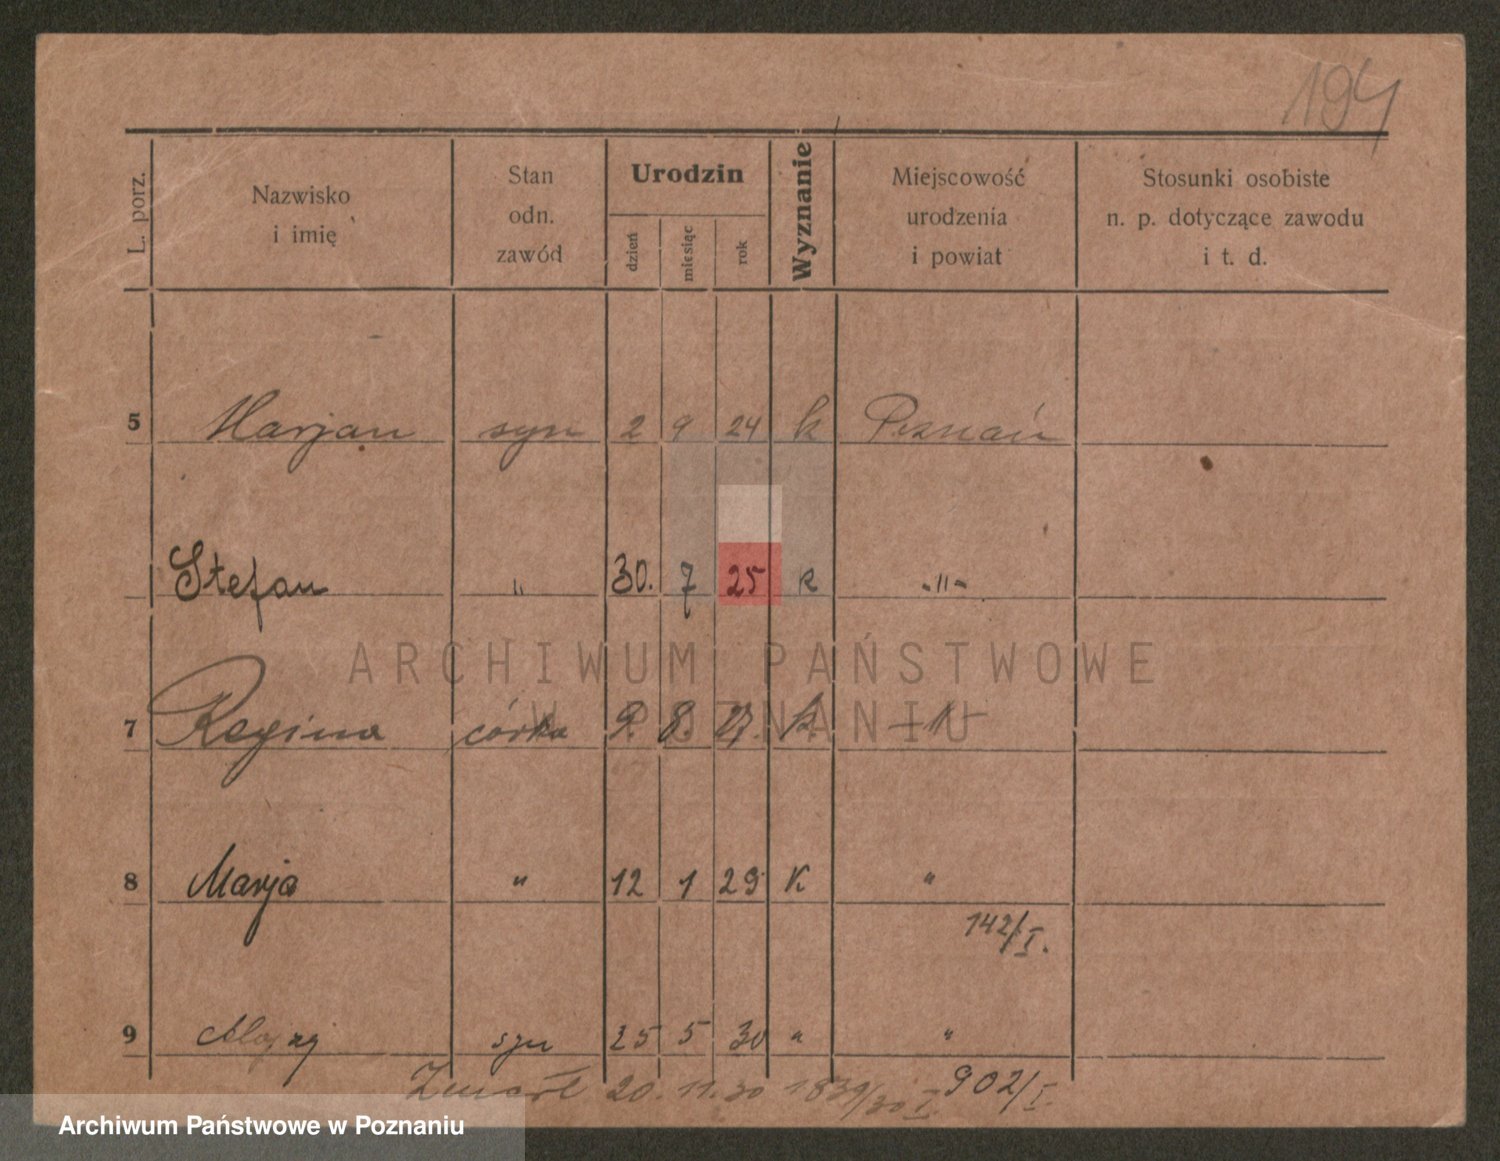 194
L. porz.
Nazwisko
i imię
Stan
odn.
zawód
Urodzin
dzień
miesiąc
rok
Wyznanie
Miejscowość
urodzenia
i powiat
Stosunki osobiste
n. p. dotyczące zawodu
i t. d.
5 Marjan syn 2 9 24 k Poznań
Stefan " 30. 7 25 k -"-
ARCHIWUM PAŃSTWOWE
W POZNANIU
7 Regina córka 9. 8. 27. k -"-
8 Marja " 12 1 29 K "
142/I.
9 Alojzy syn 25 5 30 " "
Zmarł 20. 11. 30 1839/30 I. 902/I.
Archiwum Państwowe w Poznaniu